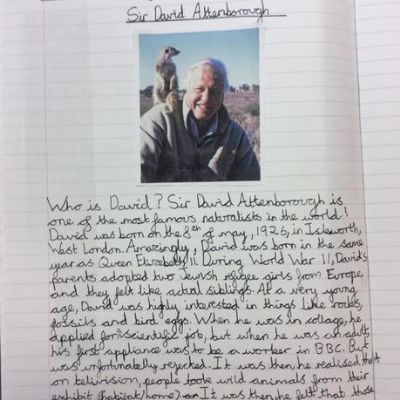 Sir David Attenborough
Who is David? Sir David Attenborough is
one of the most famous naturalists in the world!
David was born on the 8th of may, 1926, in Isleworth,
West London. Amazingly, David was born in the same
year as Queen Elizabeth II. During World War II, David's
parents adopted two Jewish refugee girls from Europe,
and they felt like actual siblings. At a very young
age, David was highly interested in things like rocks,
fossils and bird eggs. When he was in collage, he
applied for scientific job, but when he was an adult,
his first appliance was to be a worker in BBC. But
was unfortunately rejected. It was then, he realised that
on telivision, people took wild animals from their
exhibit (habitat/home) It was then, he felt that those